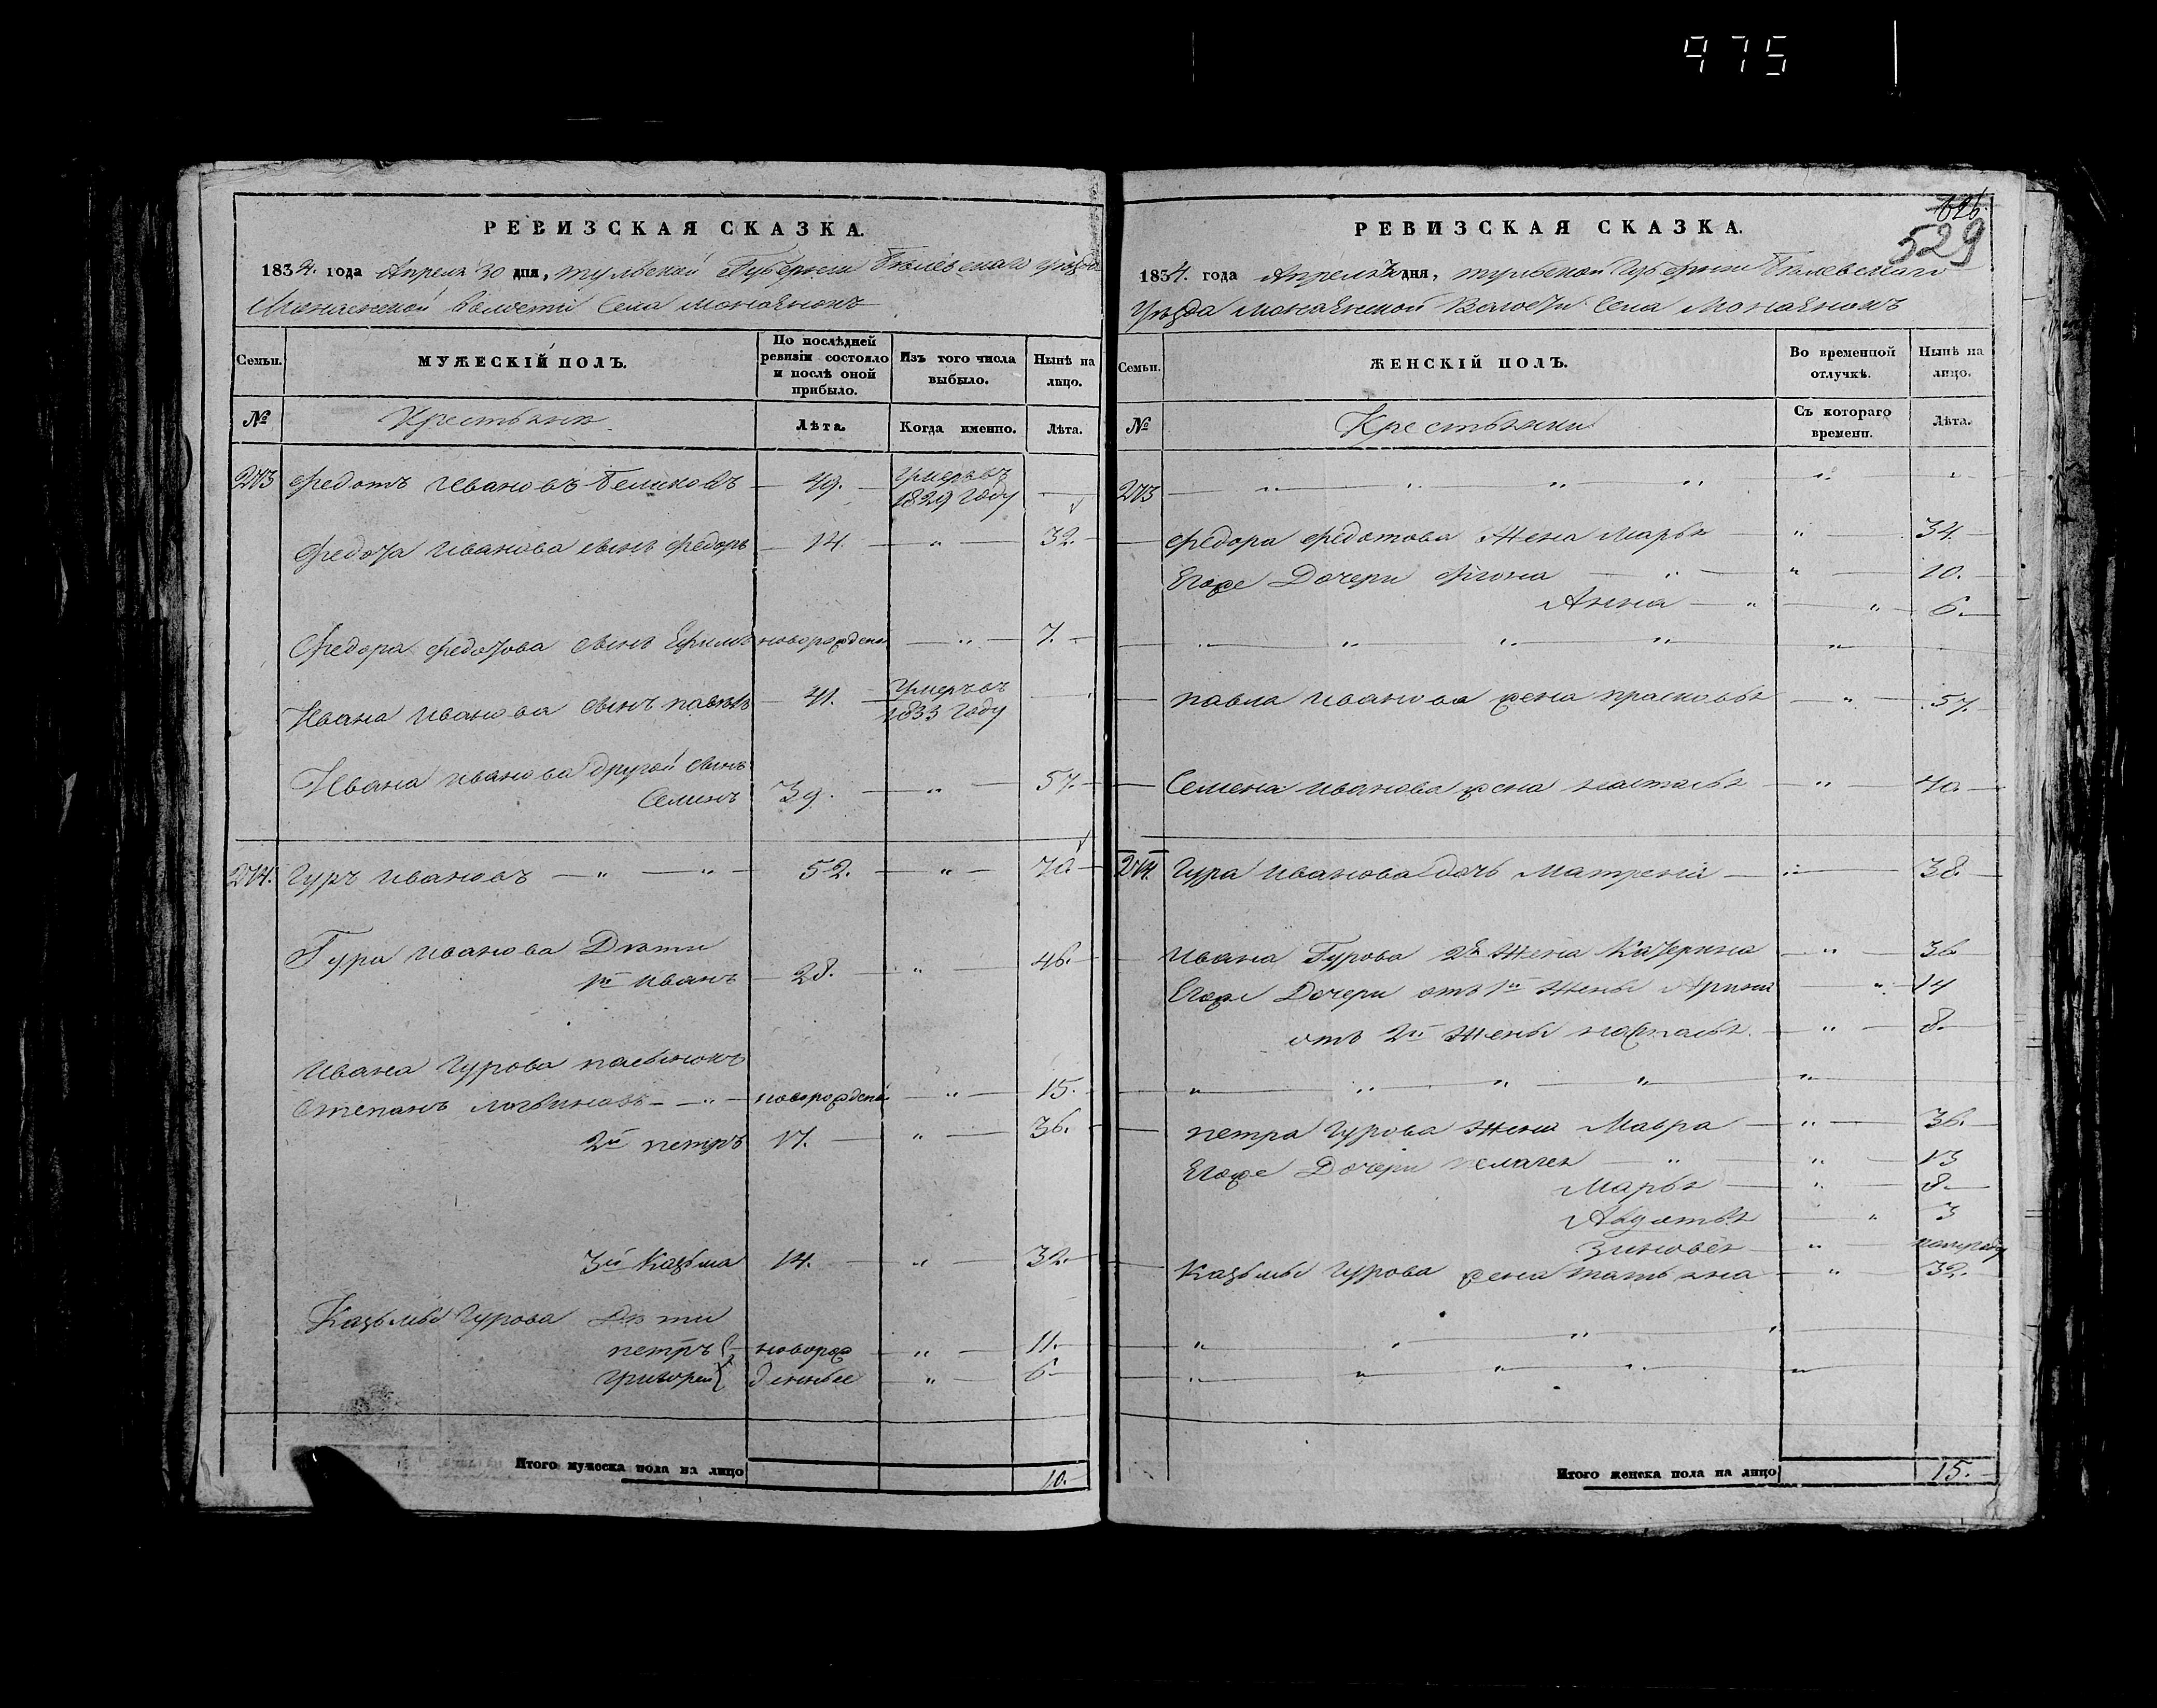 975
РЕВИЗСКАЯ СКАЗКА.
1834. года Апреля 30 дня, тульской Губернии Бѣлевского уѣзда
волости Села
Семьи.
МУЖЕСКІЙ ПОЛЪ.
По послѣдней ревизіи состояло и послѣ оной прибыло.
Изъ того числа выбыло.
Нынѣ на лицо.
№
Крестьяня
Лѣта.
Когда именно.
Лѣта.
273 Федотъ Ивановъ Беликовъ 49. Умеръ въ 1829 Году
Федота Иванова сынъ Федоръ 14. " 32.
Федора Федотова сынъ Ефимъ новорожденъ " 7.
Ивана Иванова сынъ павелъ 41. Умеръ въ 1833 Году
Ивана Иванова другой сынъ
Семенъ 39. " 57.
274. Гуръ Ивановъ " " 52. " 70
Гура Иванова Дѣти
1й Иванъ 28. " 46.
Ивана Гурова пасынокъ
Степанъ " новорожденъ " 15.
2й петръ 17. " 36.
3й Казьма 14. " 32.
Казьмы Гурова Дѣти
петръ новорож " 11.
Григорей денные " 6
Итого мужеска пола на лицо 10.
626.
529
РЕВИЗСКАЯ СКАЗКА.
1834. года Апреля 30 дня, тульской Губернии Бѣлевскаго
Уѣзда Волости Села
Семьи.
ЖЕНСКІЙ ПОЛЪ.
Во временной отлучкѣ.
Нынѣ на лицо.
№
Крестьянки
Съ котораго времени.
Лѣта.
273 " " " " " "
Федора Федотова Жена Марья " 34.
Егоже Дочери " " 10.
Анна " " 6.
" " " " "
павла Иванова жена прасковья " 57.
Семена Иванова жена насталья " 40.
274 Гура Иванова дочь Матрена " 38.
Ивана Гурова 2я Жена Катерина " 36
Егоже Дочери отъ 1й Жены Арина " 14
отъ 2й Жены насталья " 8.
" " " " "
петра Гурова Жена Мавра " 36.
Егоже Дочери пелагея " " 13
Марья " 8.
Авдотья " 3
Зиновея " полугоду
Казьмы Гурова жена татьяна " 32.
" " " "
" " " " "
Итого женска пола на лицо 15.